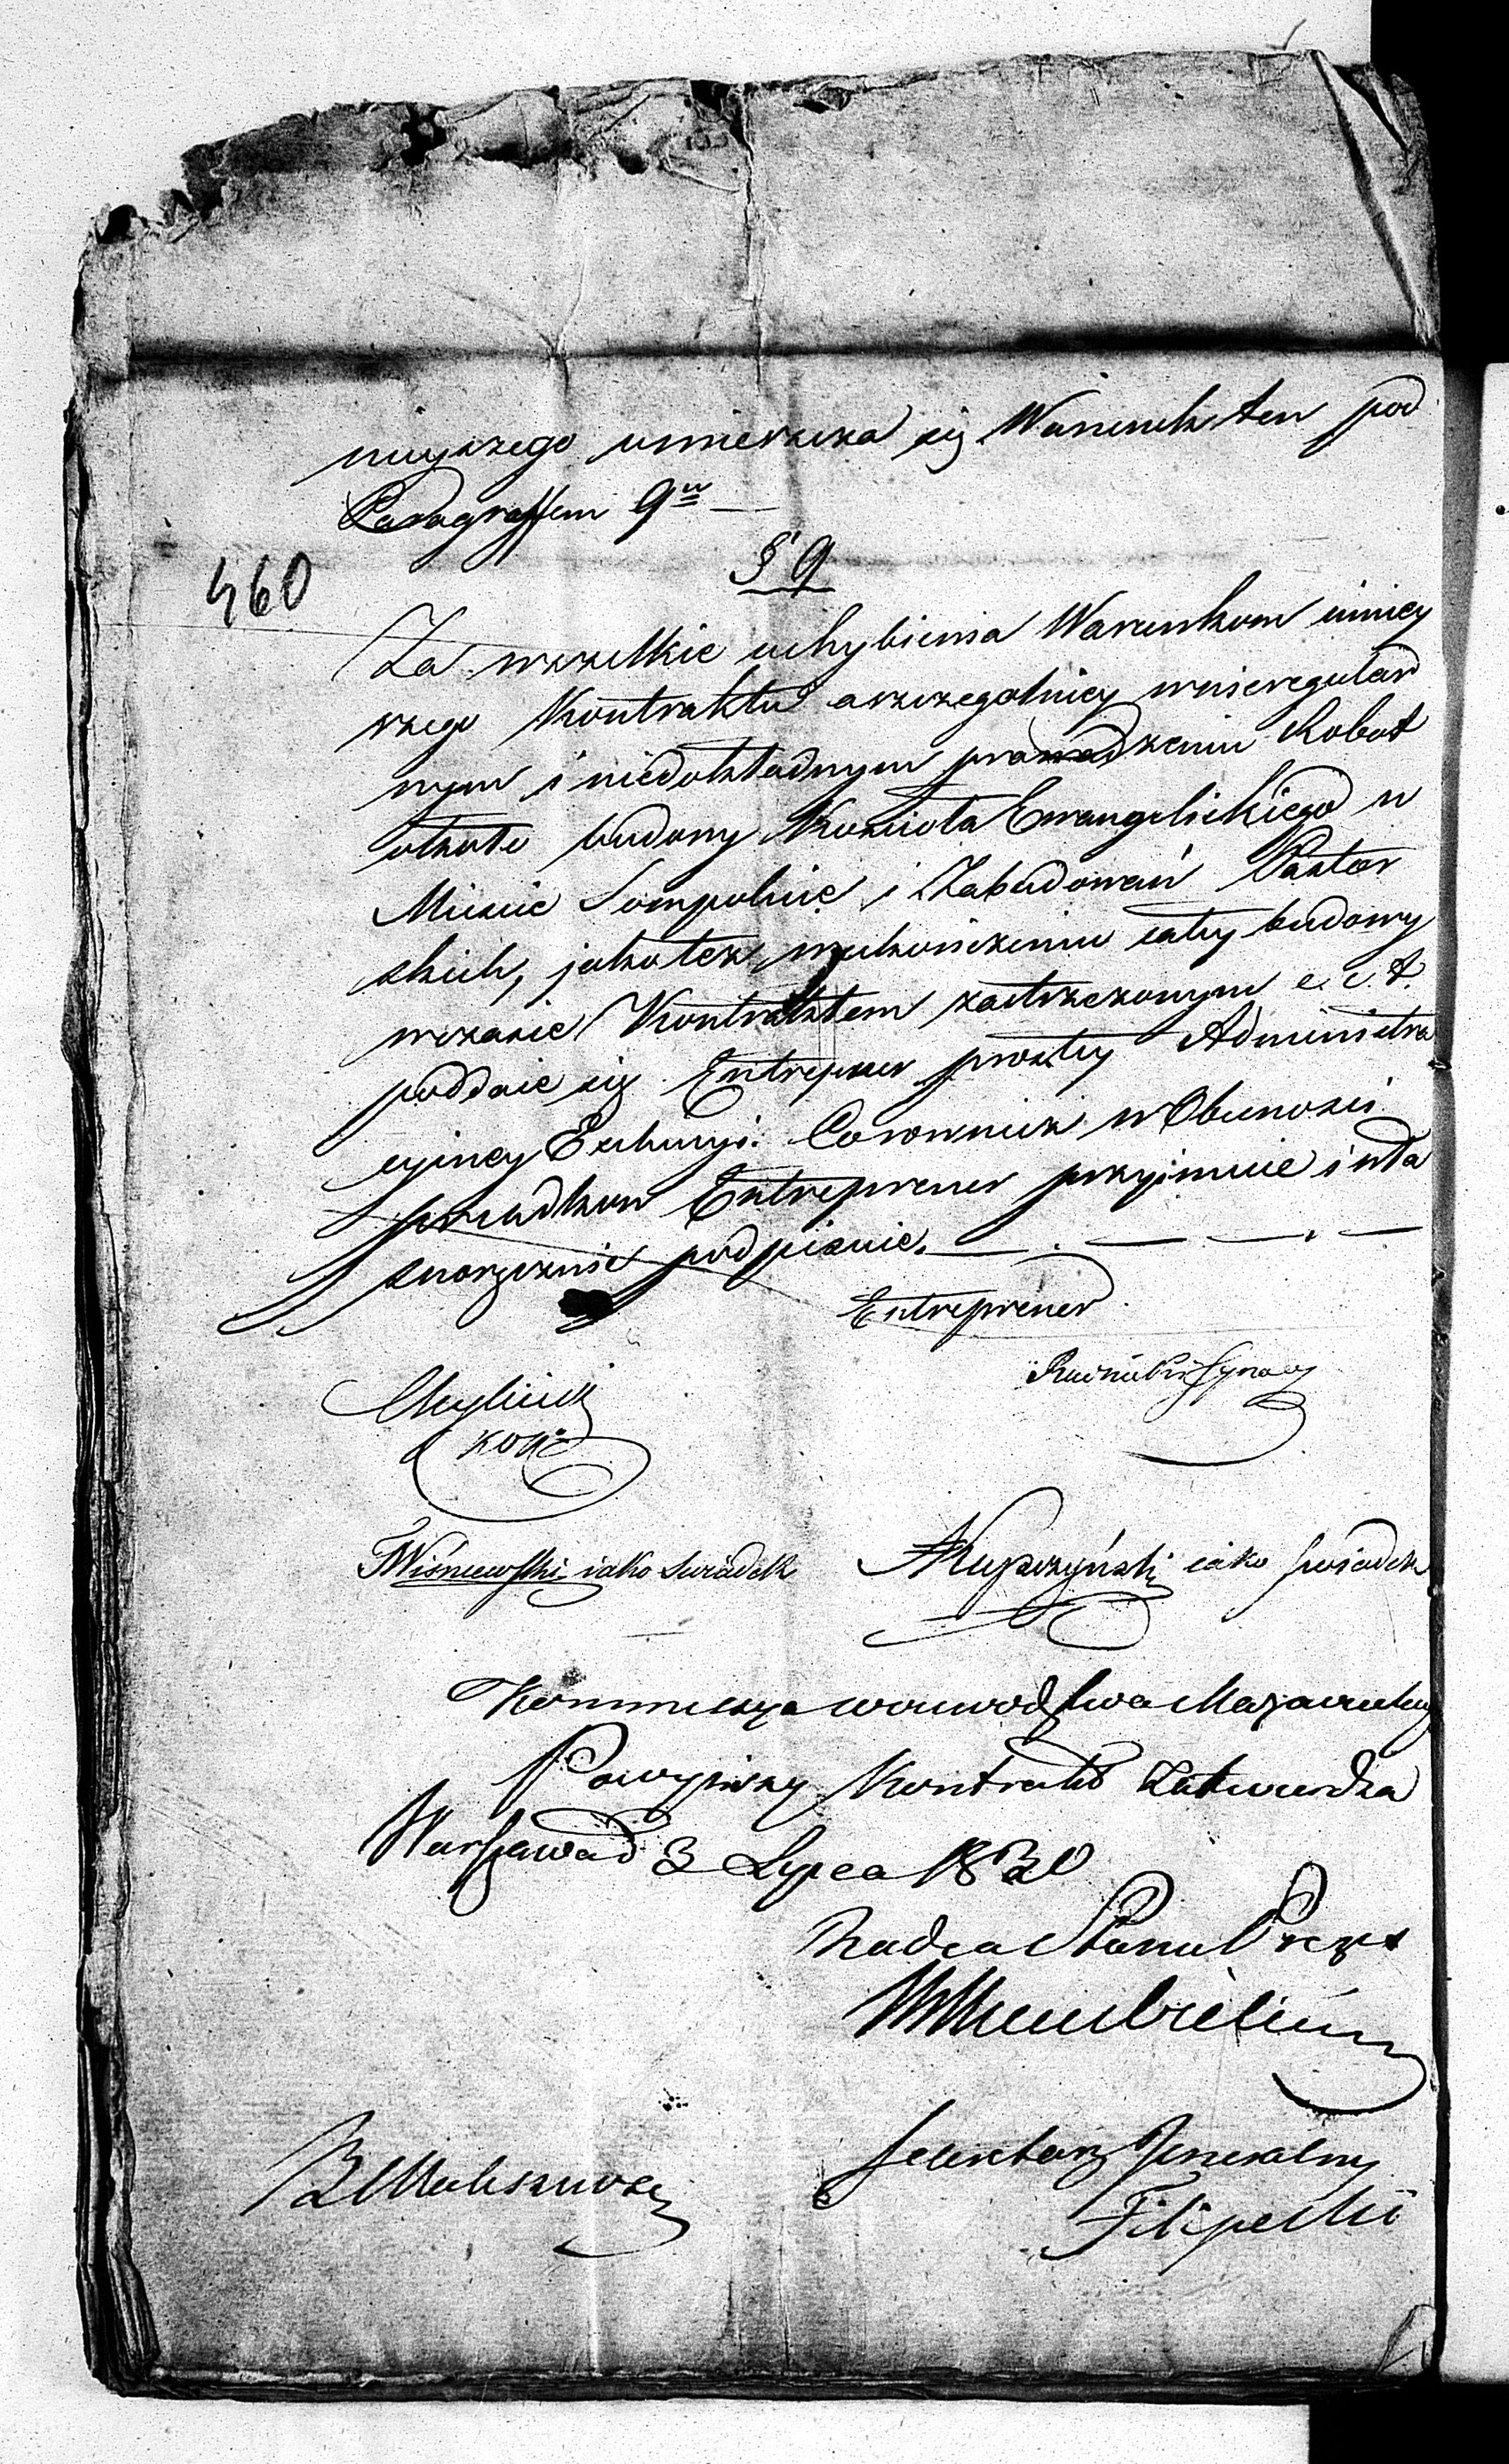 nieyszego umieszcza się Warunek ten pod
Paragraffem 9m —
§ 9
460
Za wszelkie uchybienia Warunkom niniey
szego Kontraktu a szczegolniey w nieregular
nym i niedokładnym prowadzeniu Robot
około budowy Kościoła Ewangelickiego w
Mieście Sompolnie i Zabudowań Pastor
skich, jako też w ukończeniu całey budowy
w czasie Kontraktem zastrzeżonym e. c. t.
poddaie się Entreprener prostey Administra
cyiney Exekucyi. Co rownież w Obecności
świadkow Entreprener przyimuie i wła
snoręcznie podpisuie. — . — — . —
Entreprener
Rudnicki Ignacy
TWiśniewski iako świadek
Kupczyński iako świadek
Kommissya woiewodztwa Mazowieckiego
Powyższy Kontrakt Zatwierdza
Warszawa d 3 Lipca 1830
Radca Stanu Prezes
Sekretarz Jeneralny
Filipecki